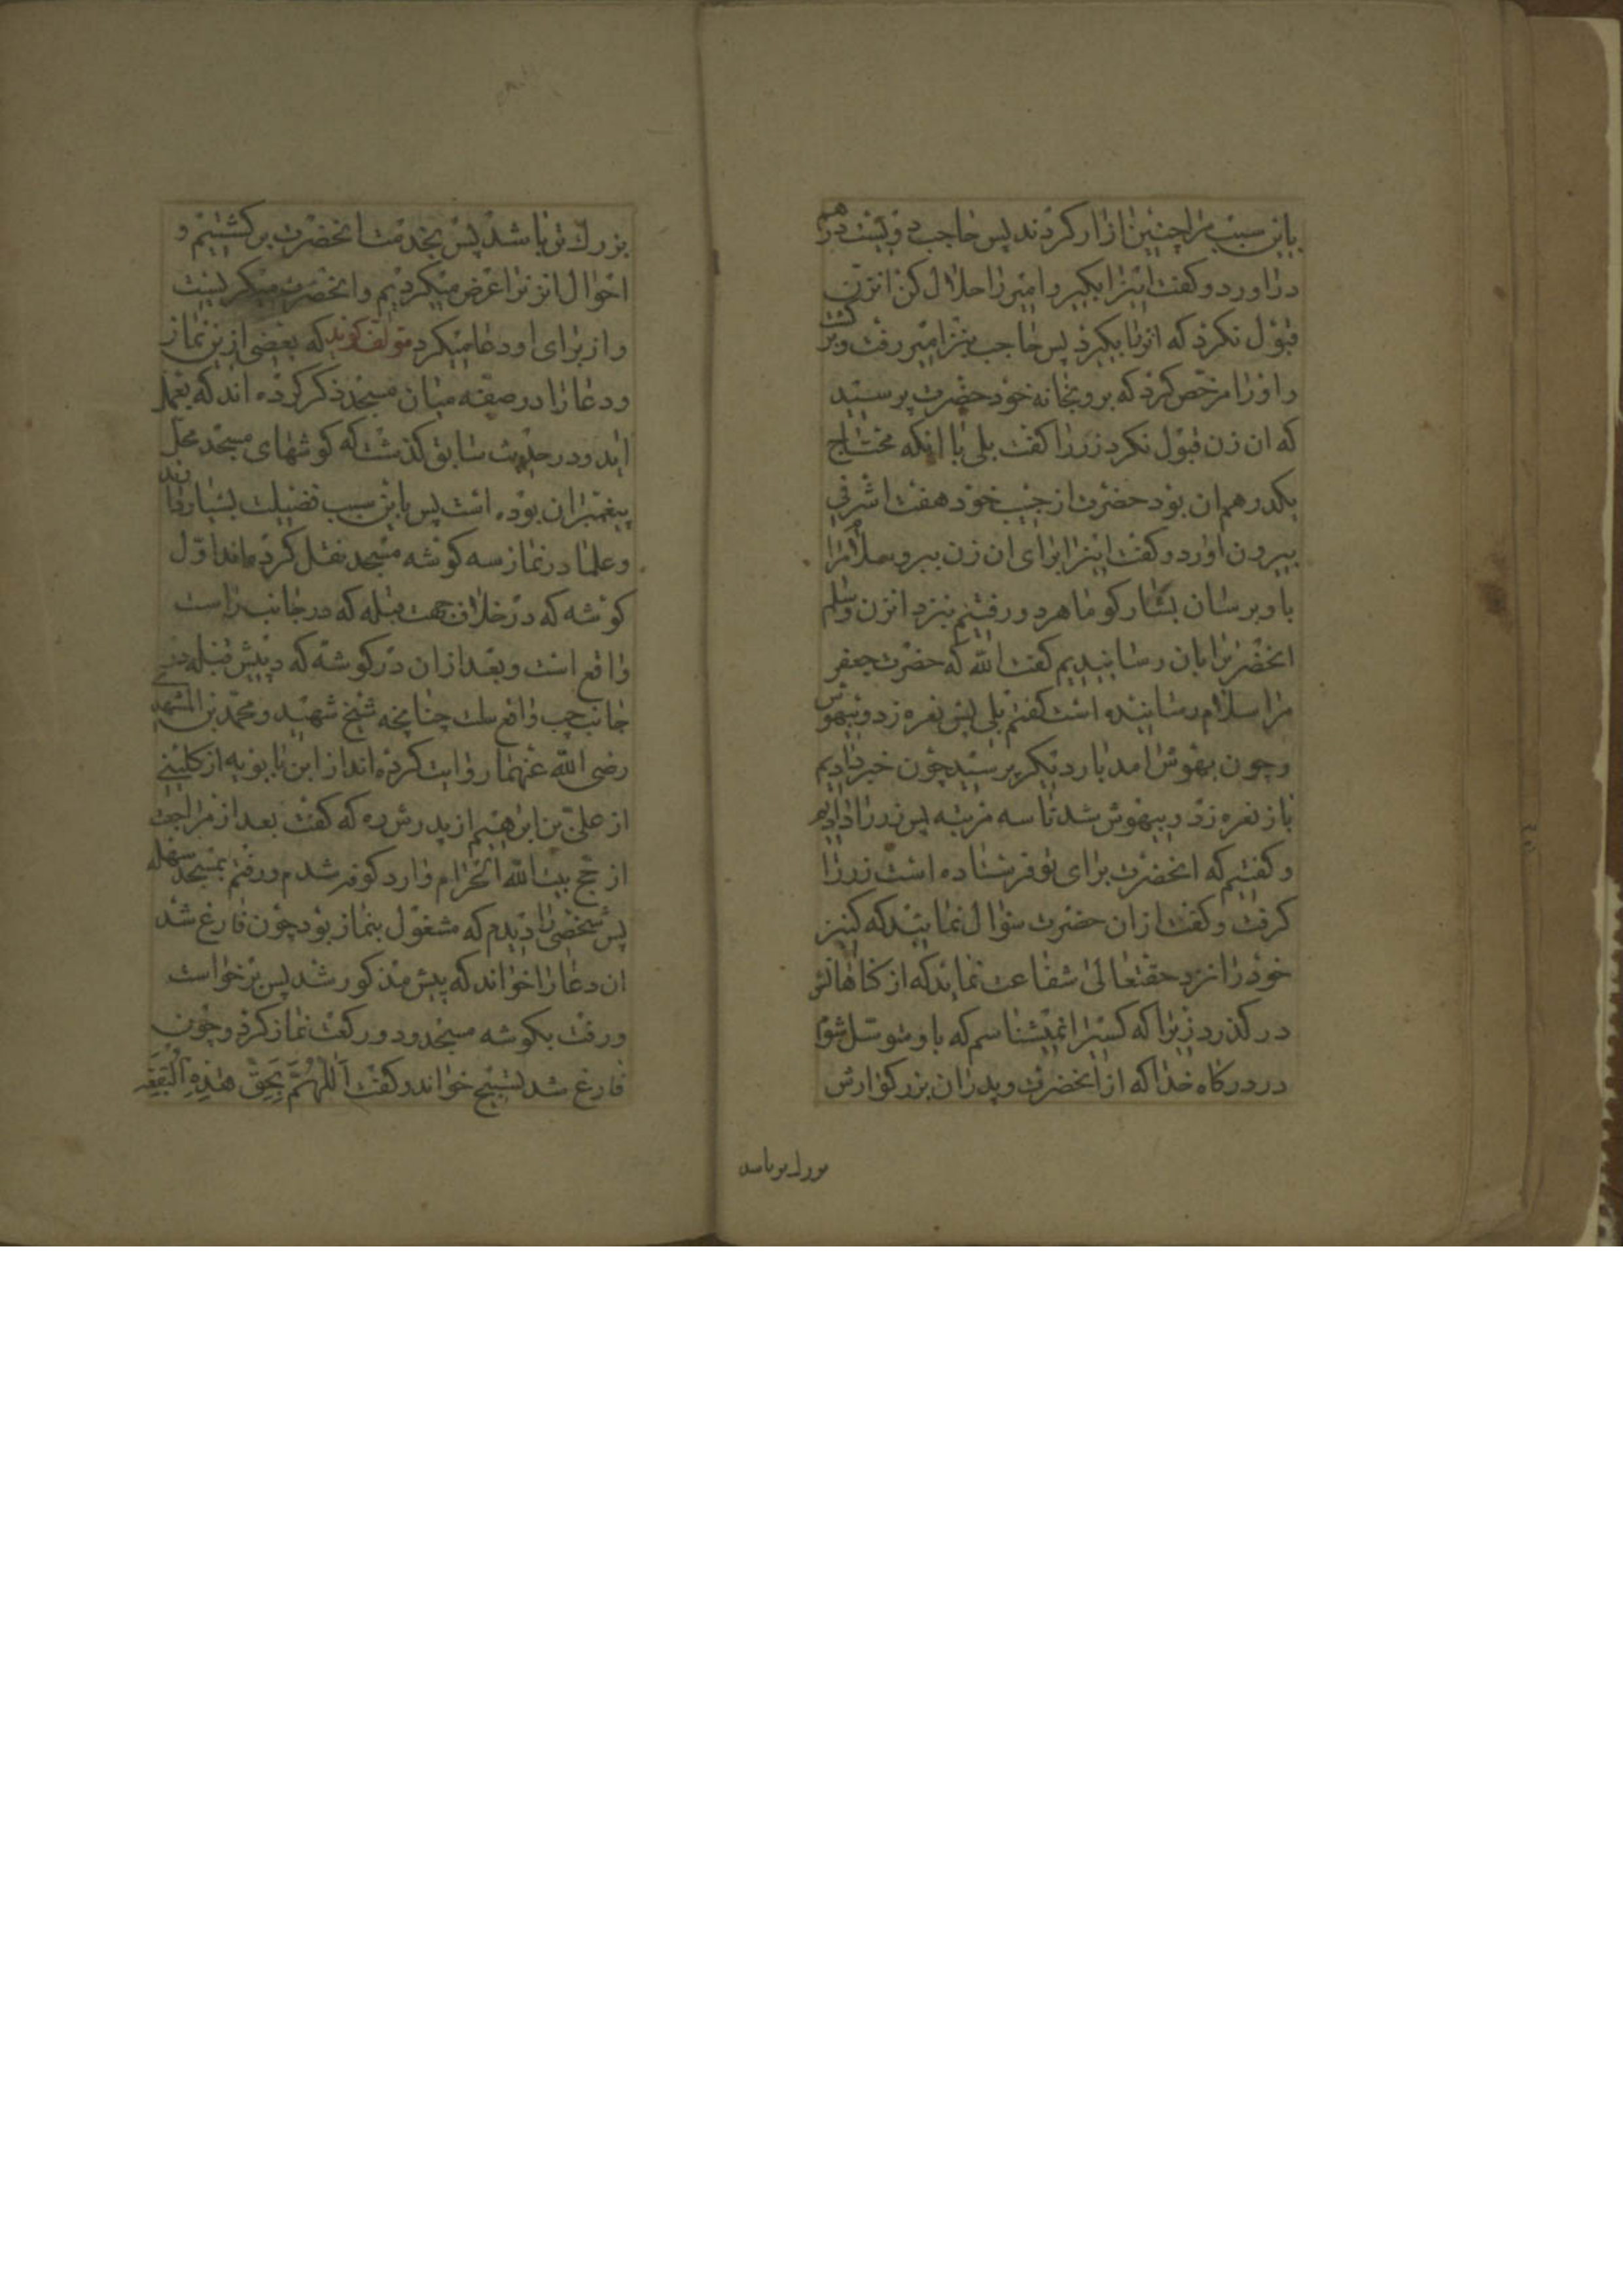 باین سبب مرا چنین ازار کردند پس حاجب دویست درهم
دراورد و کفت اینرا بکیر و امیر را حلال کن انزن
قبول نکرد که انرا بکیرد پس حاجب بنزد امیر رفت و برکشت
و اورا مرخص کرد که برو بخانه خود حضرت پرسید
که ان زن قبول نکرد زر را کفت بلی با انکه محتاج
بکدرهم ان بود حضرت از جیب خود هفت اشرفی
بیرون اورد و کفت اینرا برای ان زن ببر و سلام مرا
باو برسان بشار کو ما هر دو رفتیم بنزد انزن و سلم
انحضرترا بان رسانیدیم کفت الله که حضرت جعفر
مرا سلام رسانیده است کفتم بلی پس نعره زد و بیهوش
و چون بهوش امد بار دیکر پرسید چون خبر دادیم
باز نعره زد و بیهوش شد تا سه مرتبه پس زر را دادیم
و کفتیم که انحضرت برای تو فرستاده است زر را
کرفت و کفت ازان حضرت سؤال نمایید که کنیز
خود را نزد حقتعالی شفاعت نماید که از کناهانش
در کذرد زیرا که کسیرا نمیشناسم که باو متوسل شوم
در درکاه خدا که از انحضرت و پدران بزرکوارش
بزرك تر باشد
بزرك تر باشد پس بخدمت انحضرت برکشتیم و
احوال انزنرا عرض میکردیم و انحضرت میکریست
و از برای او دعا میکرد مؤلف کوید که بعضی ازین نماز
و دعا را در صفه میان مسجد ذکر کرده اند که بعمل
اید و در حدیث سابق کذشت که کوشهای مسجد محل
پیغمبران بوده است پس باین سبب فضیلت بسیار دارند
و علما در نماز سه کوشه مسجد نقل کرده اند اول
کوشه که در خلاف جهت قبله که در جانب راست
واقع است و بعد ازان در کوشه که در پیش قبله در
جانب چپ واقع است چنانچه شیخ شهید و محمد بن المشهدی
رضی الله عنهما روایت کرده اند از ابن بابویه از کلینی
از علی بن ابرهیم از پدرش ره که کفت بعد از مراجعت
از حج بیت الله الحرام وارد کوفه شدم و رفتم بمسجد سهله
پس شخصی را دیدم که مشغول بنماز بود چون فارغ شد
ان دعا را خواند که پیش مذکور شد پس برخواست
و رفت بکوشه مسجد و دو رکعت نماز کرد و چون
فارغ شد تسبیح خواند و کفت اَللّهُمَّ بِحَقِّ هٰذِهِ الْبُقْعَةِ